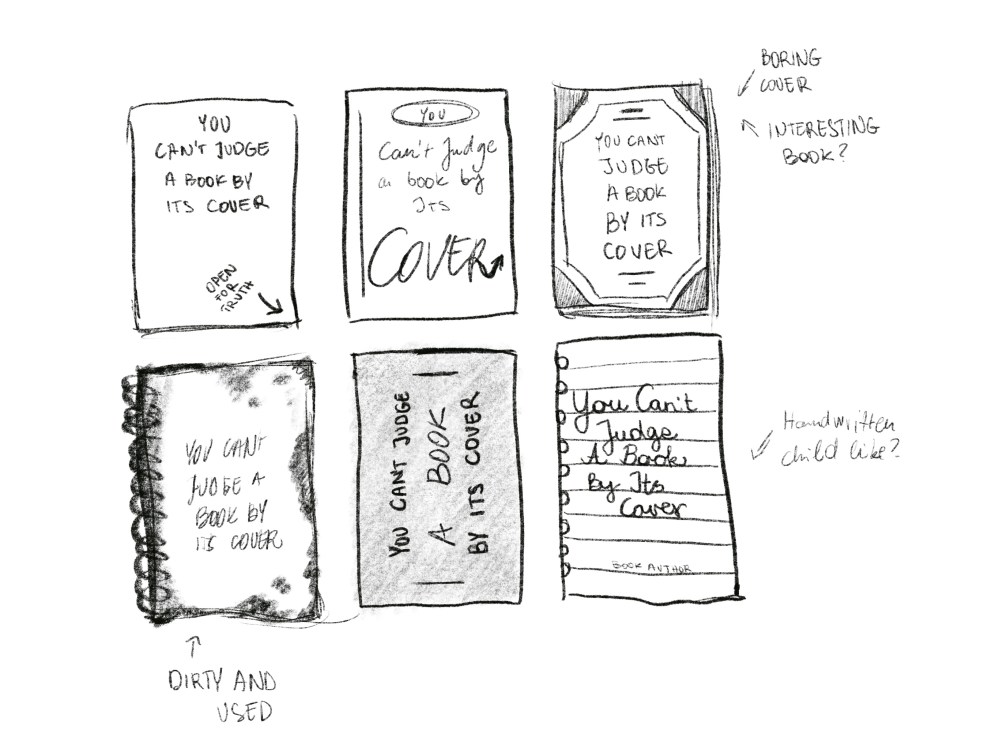 YOU
CAN'T JUDGE
A BOOK BY
ITS COVER
OPEN
FOR
TRUTH
YOU
Can't Judge
a book by
ITS
COVER
YOU CANT
JUDGE
A BOOK
BY ITS
COVER
BORING
COVER
INTERESTING
BOOK?
YOU CANT
JUDGE A
BOOK BY
ITS COVER
DIRTY AND
USED
YOU CANT JUDGE
A BOOK
BY ITS COVER
You Can't
Judge
A Book
By Its
Cover
BOOK AUTHOR
Handwritten
child like?